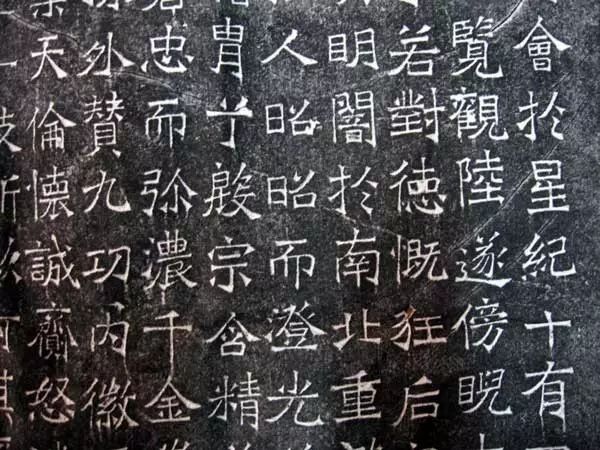 會於星紀十有
覽觀陸遂傍睨
若對德慨狂后
明闇於南北重
人昭昭而澄光
胄于殷宗含精
忠而弥濃千金
外贊九功內徽
天倫懷誠齌怒